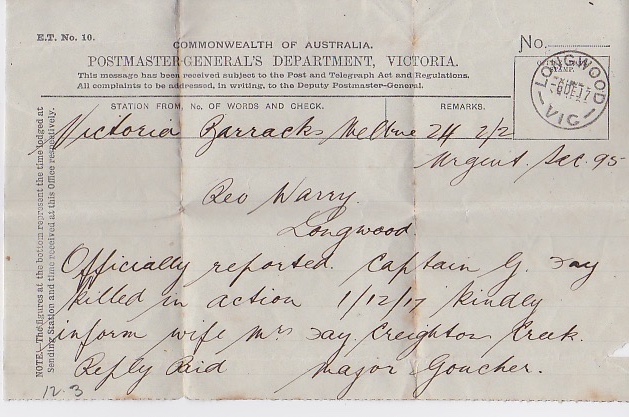 E.T. No. 10.
COMMONWEALTH OF AUSTRALIA.
POSTMASTER-GENERAL'S DEPARTMENT, VICTORIA.
This message has been received subject to the Post and Telegraph Act and Regulations.
All complaints to be addressed, in writing, to the Deputy Postmaster-General.
No.
LONGWOOD
VIC
STATION FROM, No. OF WORDS AND CHECK.
REMARKS.
Victoria Barracks Melbne 24 2/2
Urgent. Sec. 95
Rev Warry.
Longwood
Officially reported. Captain G. Day
killed in action 1/12/17 kindly
inform wife Mrs Day Creighton Creek.
Reply Paid Major Goucher.
NOTE.—The figures at the bottom represent the time lodged at
Sending Station and time received at this Office respectively.
12.3